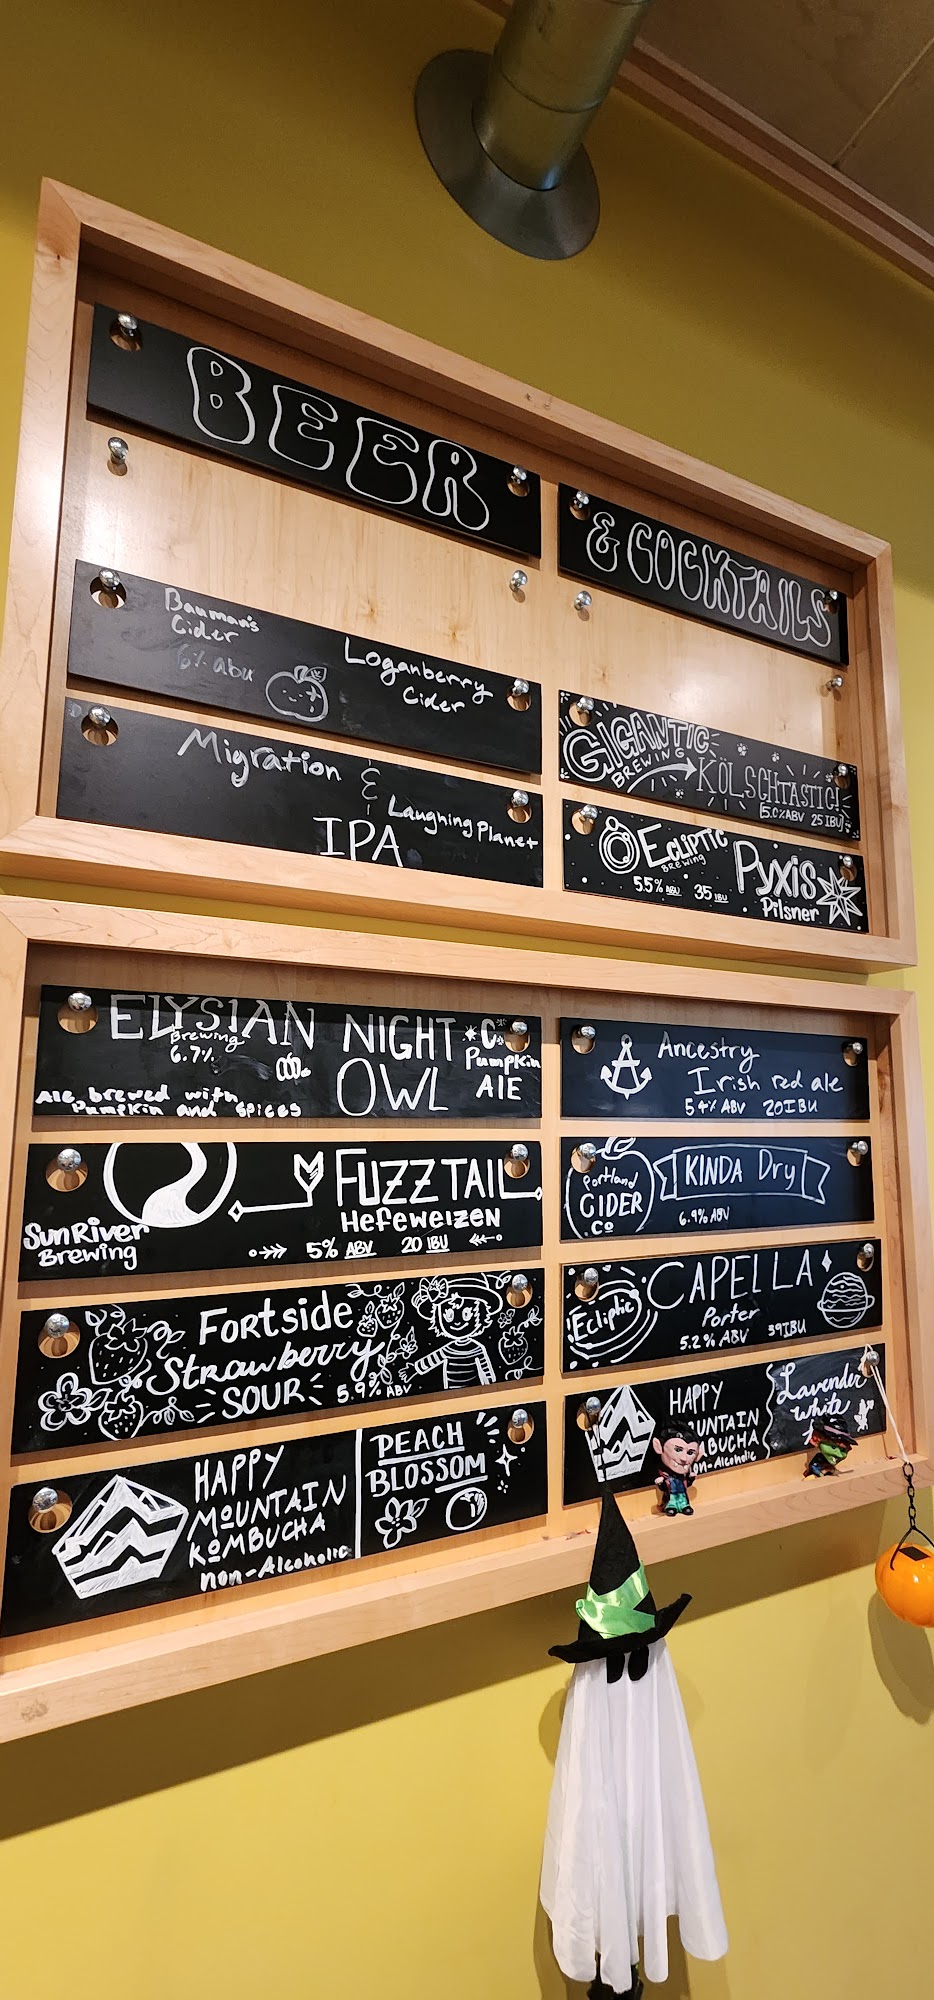 BEER
& COCKTAILS
Bauman's
Cider
6% abv
Loganberry
Cider
Migration
&
Laughing Planet
IPA
GIGANTIC
BREWING
KÖLSCHTASTIC!
5.0% ABV 25 IBU
Ecliptic
BREWING
5.5% ABU 35 IBU
Pyxis
Pilsner
ELYSIAN
Brewing
6.7%
Ale brewed with
Pumpkin and spices
NIGHT
OWL
Pumpkin
ALE
Ancestry
Irish red ale
5.4% ABV 20IBU
SunRiver
Brewing
FUZZTAIL
HefeweizeN
5% ABV 20 IBU
Portland
CIDER
Co
KINDA Dry
6.9% ABV
Fortside
Strawberry
SOUR
5.9% ABV
Ecliptic
CAPELLA
Porter
5.2% ABV 39IBU
HAPPY
MOUNTAIN
KOMBUCHA
non-Alcoholic
PEACH
BLOSSOM
HAPPY
MOUNTAIN
KOMBUCHA
non-Alcoholic
Lavender
White